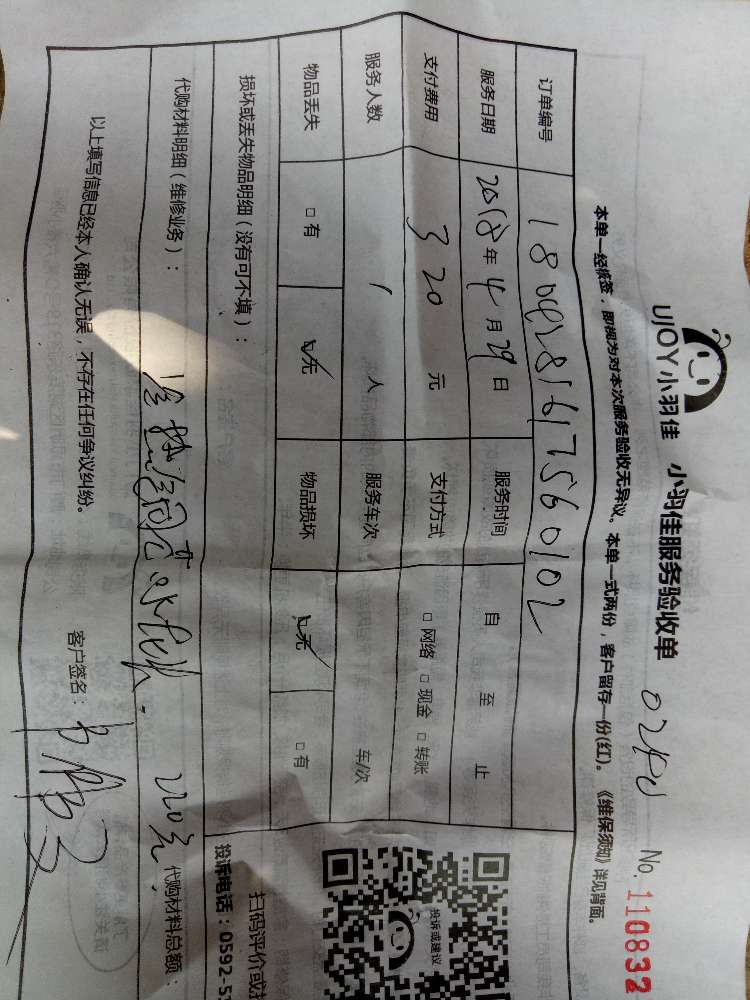 UJOY小羽佳 小羽佳服务验收单 No. 110832
本单一经派签，即视为对本次服务验收无异议。本单一式两份，客户留存一份(红)。《维保须知》详见背面。
订单编号
服务日期 2018年4月29日 服务时间 自 至 止
支付费用 320元 支付方式 □网络 □现金 □转账
服务人数 1人 服务车次 车/次
物品丢失 □有 □无 物品损坏 □无 □有
损坏或丢失物品明细（没有可不填）：
代购材料明细（维修业务）： 220元. 代购材料总额：
以上填写信息已经本人确认无误，不存在任何争议纠纷。 客户签名：
投诉或建议
扫码评价或
投诉电话：0592-5